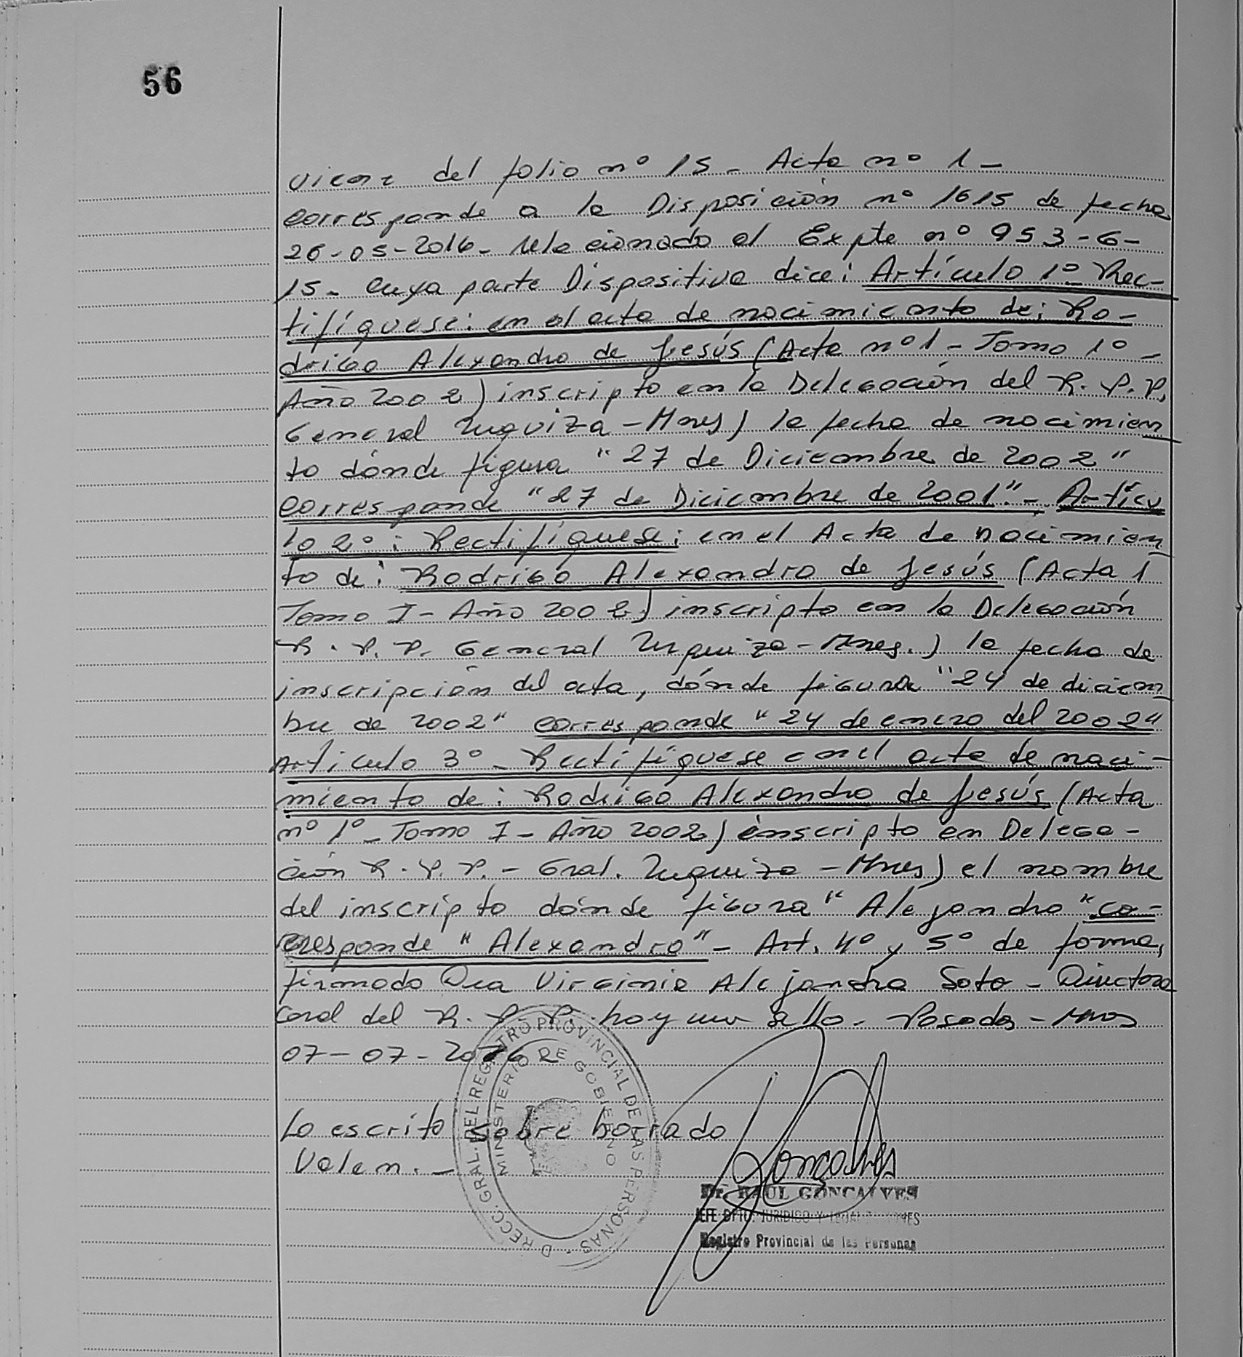 56
viene del folio nº 15 - Acta nº 1 -
corresponde a la Disposición nº 1615 de fecha
26-05-2016 - relacionado al Expte nº 953-G-
15 - cuya parte Dispositiva dice: Artículo 1º Rec-
tifíquese: en el acta de nacimiento de: Ro-
drigo Alexandro de Jesús (Acta nº 1 - Tomo 1º -
Año 2002) inscripto en la Delegación del R.P.P.
General Urquiza - Mnes) la fecha de nacimien
to dónde figura "27 de Diciembre de 2002"
corresponde "27 de Diciembre de 2001" - Artícu
lo 2º: Rectifíquese: en el Acta de nacimien
to de: Rodrigo Alexandro de Jesús (Acta 1
Tomo I - Año 2002) inscripto en la Delegación
R.P.P. General Urquiza - Mnes.) la fecha de
inscripción del acta, dónde figura "24 de diciem
bre de 2002" corresponde "24 de enero del 2002"
Artículo 3º - Rectifíquese en el acta de naci-
miento de: Rodrigo Alexandro de Jesús (Acta
nº 1º - Tomo I - Año 2002) inscripto en Delega-
ción R.P.P. - Gral. Urquiza - Mnes) el nombre
del inscripto dónde figura "Alejandro" co-
rresponde "Alexandro" - Art. 4º y 5º de forma,
firmado Dra Virginia Alejandra Soto - Directora
Gral del R.P.P. hay un sello - Posadas - Mnes
07-07-2016
Lo escrito sobre borrado
Valen. -
DIRECC. GRAL. DEL REGISTRO PROVINCIAL DE LAS PERSONAS
MINISTERIO DE GOBIERNO
Goncalves
Dr. RAUL GONCALVES
JEFE DPTO. JURIDICO Y
Registro Provincial de las Personas